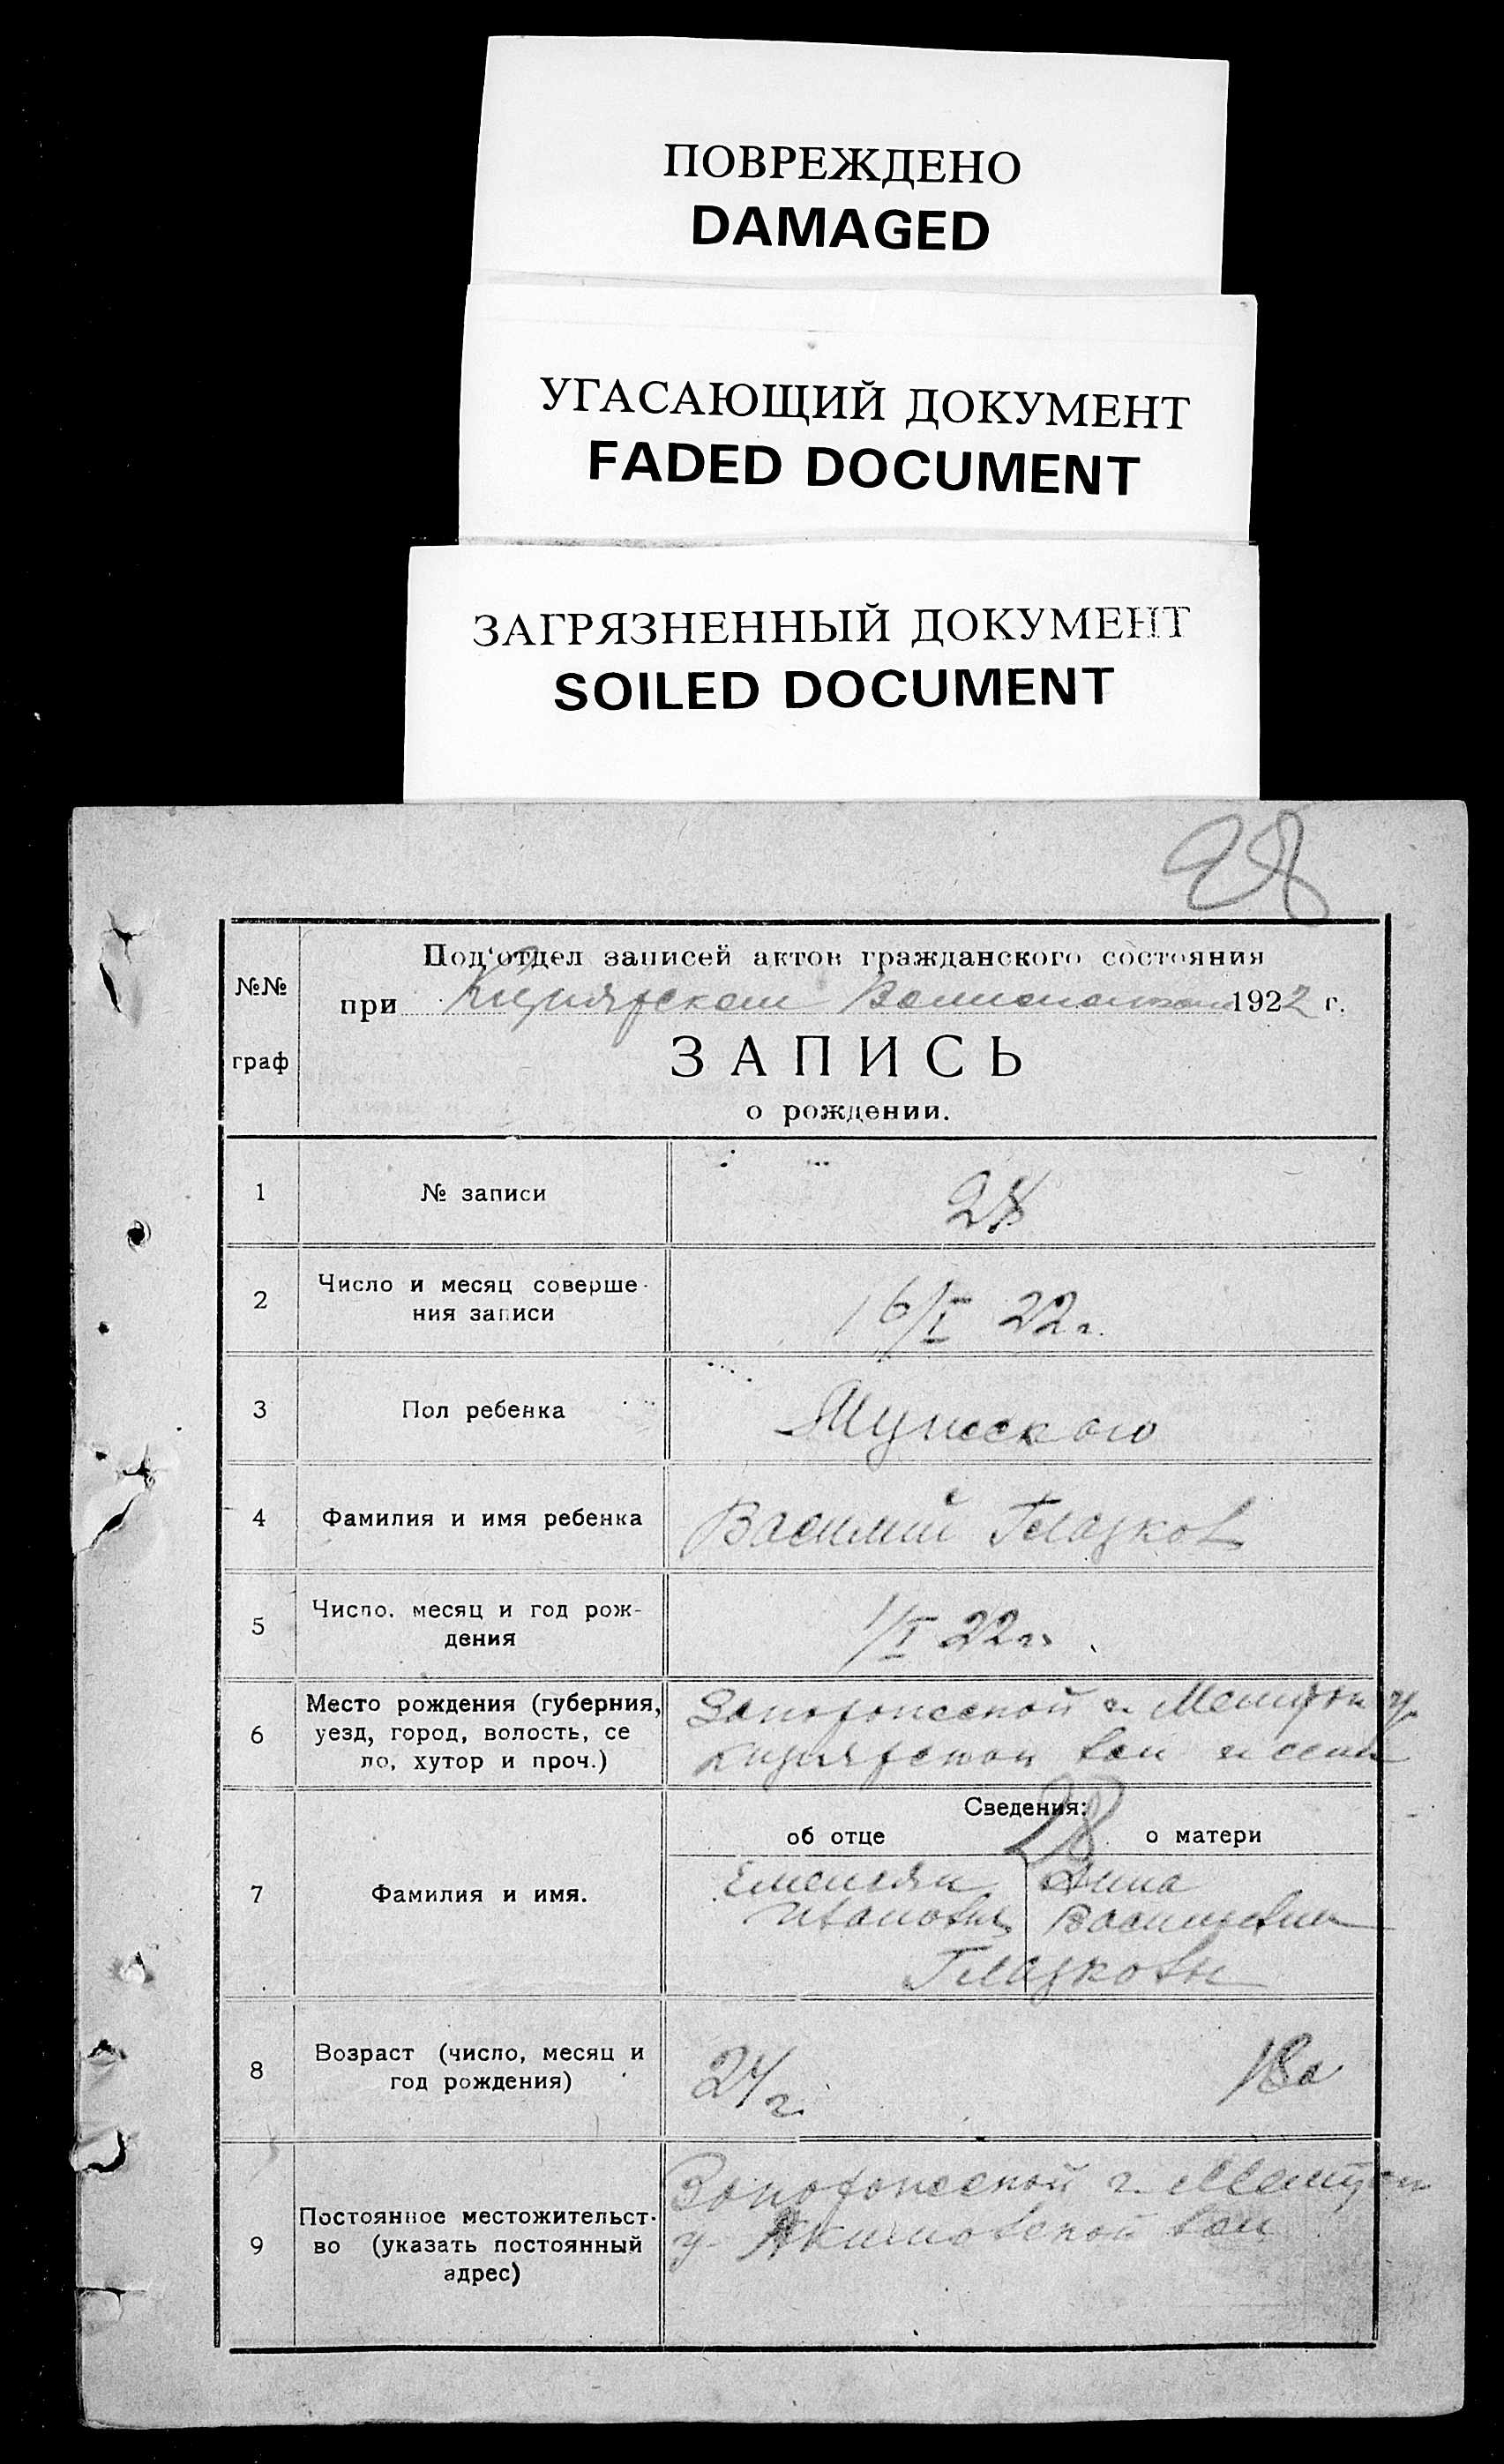 ПОВРЕЖДЕНО
DAMAGED
УГАСАЮЩИЙ ДОКУМЕНТ
FADED DOCUMENT
ЗАГРЯЗНЕННЫЙ ДОКУМЕНТ
SOILED DOCUMENT
28
№№
граф
Под'отдел записей актов гражданского состояния
при Кизиярском 1922 г.
ЗАПИСЬ
о рождении.
1 № записи 28
2 Число и месяц соверше-
ния записи 16/I 22 г.
3 Пол ребенка Мужского
4 Фамилия и имя ребенка Василий Глазков
5 Число. месяц и год рож-
дения 1/I 22 г.
6 Место рождения (губерния,
уезд, город, волость, се
ло, хутор и проч.)
Запорожской г. Мелитоп у.
Кизиярской вол и села
Сведения:
28
об отце о матери
7 Фамилия и имя.
Емельян Анна
Иванович Васильевна
Глазковы
8 Возраст (число, месяц и
год рождения)
24 г. 18 л
9 Постоянное местожительст-
во (указать постоянный
адрес)
Запорожской г. Мелитоп
у. Акимовской вол